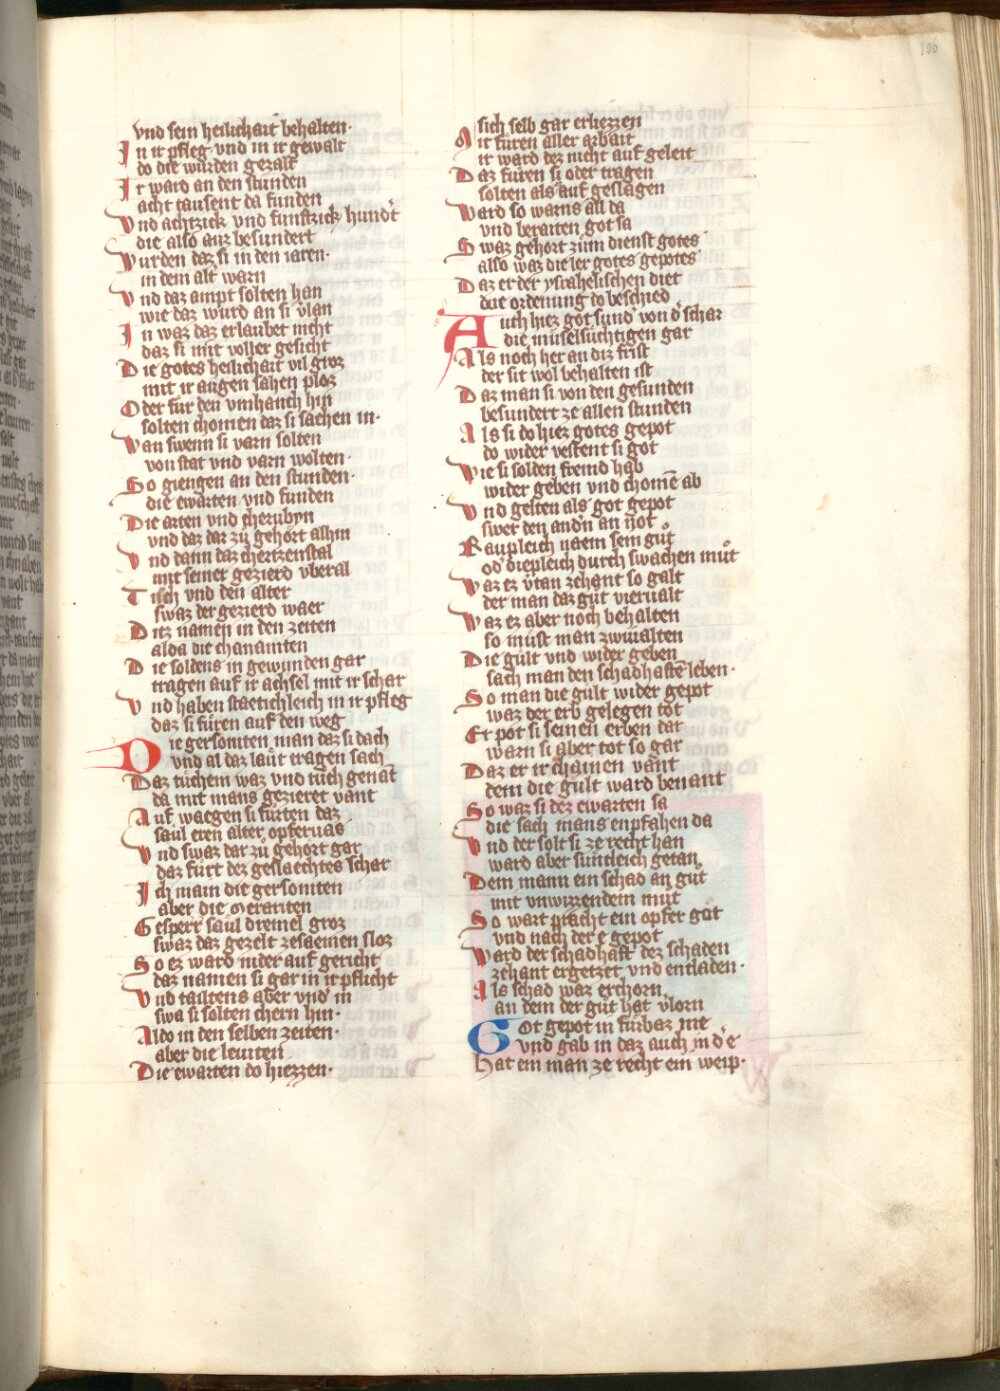 106
vnd sein heilichait behalten·
In ir pfleg vnd in ir gewalt
do die wurden gezalt
Ir ward an den stunden
acht tausent da funden
Vnd achtzick vnd funftzick hundert
die also auz besundert
Wurden daz si in den iaren·
in dem alt warn
Vnd daz ampt solten han
wie daz wurd an si vlan
In waz daz erlaubet nicht
daz si mit voller gesicht
Die gotes heilichait vil groz
mit ir augen sahen ploz
Oder fur den vmhanch hin
solten chomen daz si sachen in·
Wan swenn si varn solten
von stat vnd varn wolten·
So giengen an den stunden·
die ewarten vnd funden
Die arken vnd cherubyn
vnd daz dar zu gehort alhin
Vnd dann daz chertzenstal
mit seiner gezierd vberal
Tisch vnd den alter
swaz der gezierd waer
Ditz namen in den zeiten
alda die chananiten
Die soldens in gewunden gar
tragen auf ir achsel mit ir schar
Vnd haben staetichleich in ir pfleg
daz si füren auf den weg
Die gersoniten man daz si dach
vnd al daz laut tragen sach
Daz tuchem waz vnd tuch genāt
da mit mans gezieret vant
Auf waegen si fürten daz
saul eren alter opferuas
Vnd swaz dar zu gehort gar
daz furt dez geslaechtes schar
Ich main die gersoniten
aber die Merariten
Gesperr saul dremel groz
swaz daz gezelt zesaemen sloz
So ez ward nider auf gericht
daz namen si gar in ir pflicht
Vnd tailtens aber vnd' in
swa si solten chern hin·
Aldo in den selben zeiten·
aber die leuiten
Die ewarten do hiezzen·
sich selb gar erliezzen
Mit füren aller arbait
ir ward dez nicht auf geleit
Daz füren si oder tragen
solten als auf geslagen
Ward so warns all da
vnd beraiten got sa
Swaz gehort zum dienst gotes
also waz die ler gotes gepotes
Daz er der ysrahelischen diet
die ordenung do beschied
Auch hiez got sund' von d' schar
die müselsüchtigen gar
Als noch her an diz frist
der sit wol behalten ist
Daz man si von den gesunden
besundert ze allen stunden
Als si do hiez gotes gepot
do wider vestent si got
Wie si solden fremd hab
wider geben vnd chomē ab
Vnd gelten als got gepot
swer den andn an not
Raupleich naem sein gut
od' diepleich durch swachen mut
Waz ez vtan zehant so galt
der man daz gut vierualt
Waz ez aber noch behalten
so must man zwiualten
Die gült vnd wider geben
sach man den schadhaftē leben·
So man die gult wider gepot
waz der erb gelegen tot
Er pot si seinen erben dar
warn si aber tot so gar
Daz er ir chainen vant
dem die gült ward benant
So waz si dez ewarten sa
die sach mans enpfahen da
Vnd der solt si ze recht han
ward aber suntleich getan
Dem mann ein schad an gut
mit vnwizzendem mut
So wart pracht ein opfer got
vnd nach der e gepot
Ward der schadhaft dez schaden
zehant ergetzet vnd entladen·
Als schad waz erchorn
an dem der gut hat vlorn
Got gepot in fürbaz me
vnd gab in daz auch in d' e
Hat ein man ze recht ein weip·